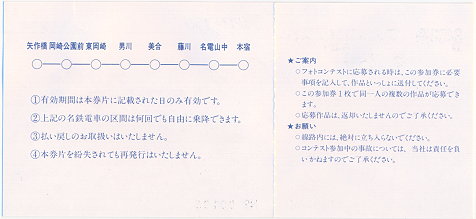 矢作橋 岡崎公園前 東岡崎 男川 美合 藤川 名電山中 本宿
①有効期間は本券片に記載された日のみ有効です。
②上記の名鉄電車の区間は何回でも自由に乗降できます。
③払い戻しのお取扱いはいたしません。
④本券片を紛失されても再発行はいたしません。
★ご案内
○フォトコンテストに応募される時は、この参加券に必要
事項を記入して、作品といっしょに送付してください。
○この参加券1枚で同一人の複数の作品が応募でき
ます。
○応募作品は、返却いたしませんのでご了承ください。
★お願い
○線路内には、絶対に立ち入らないでください。
○コンテスト参加中の事故については、当社は責任を負
いかねますのでご了承ください。